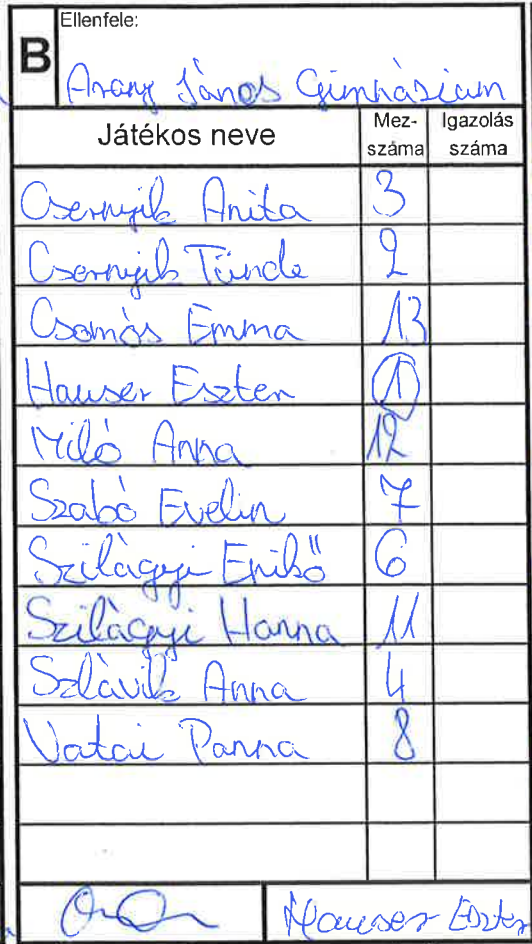 B
Ellenfele:
Arany János Gimnázium
Játékos neve Mez-száma Igazolás száma
Csernyik Anita 3
Csernyik Tünde 2
Csomós Emma 13
Hauser Eszter 1
Miló Anna 12
Szabó Evelin 7
Szilágyi Enikő 6
Szilágyi Hanna 11
Szlávik Anna 4
Vatai Panna 8
Hauser Eszter